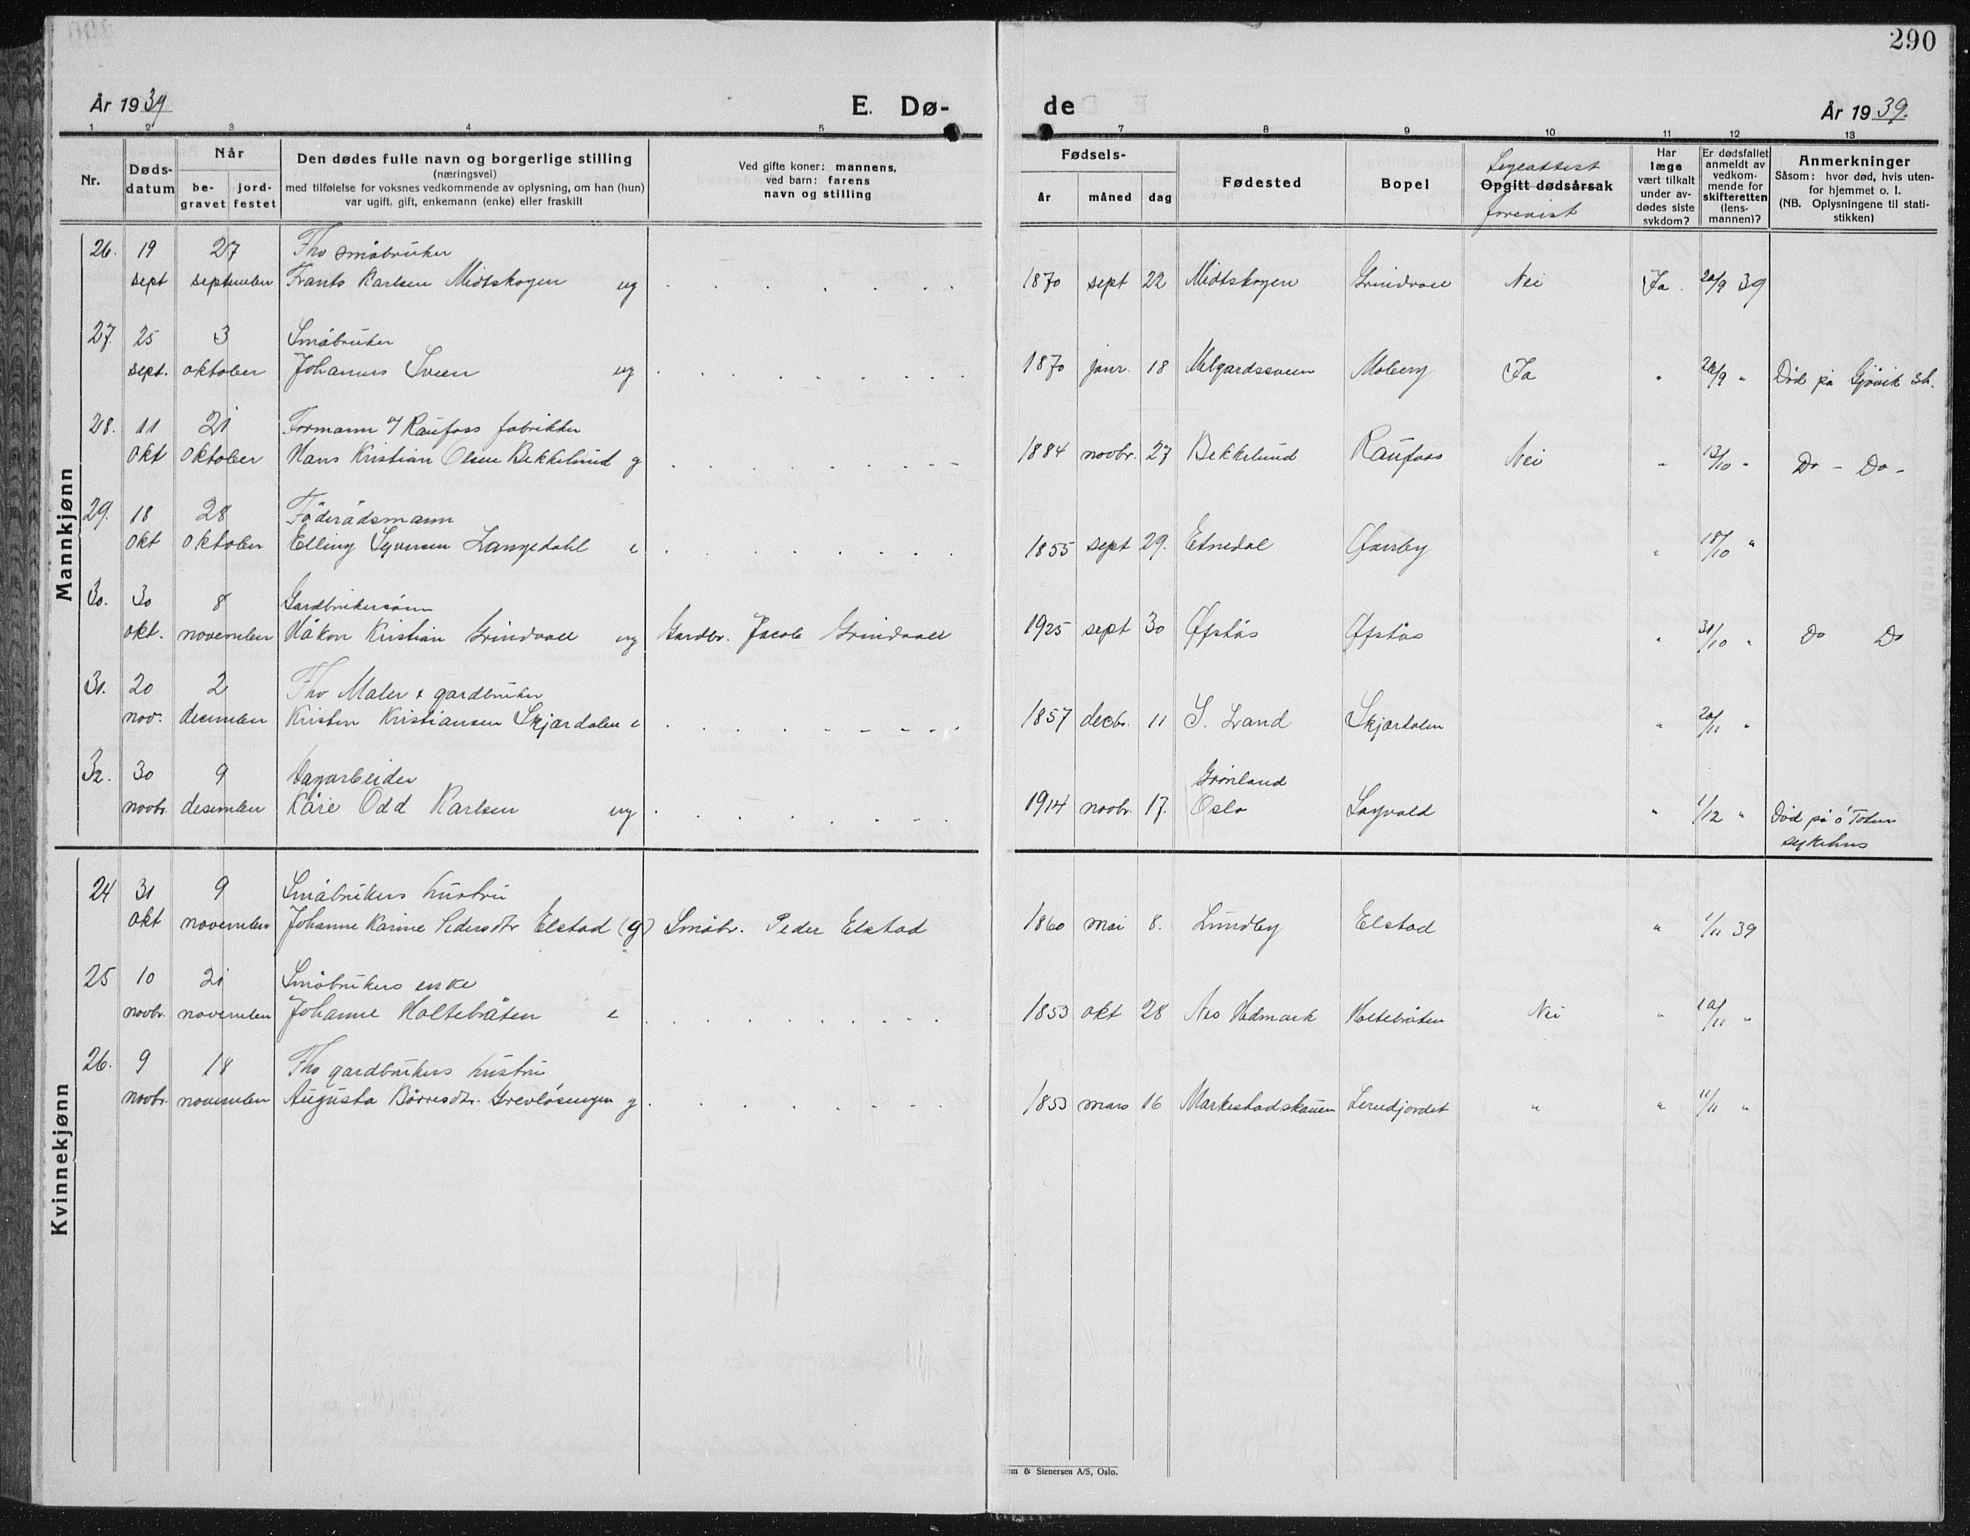 290
År 1939
E. Dø-
de
År 1939.
1 2 3 4 5
7 8 9 10 11 12 13
Nr.
Døds-
datum
Når
be-
gravet
jord-
festet
Den dødes fulle navn og borgerlige stilling
(næringsvei)
med tilføielse for voksnes vedkommende av oplysning, om han (hun)
var ugift, gift, enkemann (enke) eller fraskilt
Ved gifte koner: mannens,
ved barn: farens
navn og stilling
Fødsels-
år måned dag
Fødested
Bopel
Legeattest
Opgitt dødsårsak
forevist
Har
læge
vært tilkalt
under av-
dødes siste
sykdom?
Er dødsfallet
anmeldt av
vedkom-
mende for
skifteretten
(lens-
mannen)?
Anmerkninger
Såsom: hvor død, hvis uten-
for hjemmet o. l.
(NB. Oplysningene til stati-
stikken)
Mannkjønn
26. 19 27 Fhv småbruker
sept september Frants Karlsen Midtskogen ug 1870 sept 22 Midtskogen Grindvoll Nei Ja. 20/9 39
27. 25 3 Småbruker
sept. oktober Johannes Sveen ug 1870 janr. 18 Melgardssveen Moberg Ja " 28/9 " Død på Gjøvik sh.
28. 11 21 Formann v/ Raufoss fabrikker
okt oktober Hans Kristian Olsen Bekkelund g 1884 novbr. 27 Bekkelund Raufoss Nei " 13/10 " Do - Do -
29. 18 28 Föderådsmann
okt oktober Elling Syversen Langedahl e 1855 sept 29. Etnedal " 18/10 "
30. 30 8 Gardbrukersønn
okt. november Håkon Kristian Grindvoll ug Gardbr. Jacob Grindvoll 1925 sept 30 Øfstås Øfstås " 30/10 " Do Do
31. 20 2 Fhv Maler & gardbruker
nov. desember Kristen Kristiansen Skjærdalen e 1857 decbr. 11 S. Land Skjærdalen " 20/11 "
32. 30 9 Dagarbeider Grønland
novbr. desember Kåre Odd Karlsen ug 1914 novbr. 17. Oslo Sagvold " 1/12 " Død på ö Toten
sykehus
Kvinnekjønn
24 31 9 Småbrukers hustru
okt november Johanne Karine Pedersdtr Elstad (g) Småbr. Peder Elstad 1860 mai 8. Lundby Elstad " 1/11 39
25 10 21 Småbrukers enke
novbr. november Johanne Holtebråten e 1853 okt 28 Nes Hedmark Holtebråten Nei " 10/11 "
26. 9 18 Fhv gardbrukers hustru
novbr. november Augusta Børresdtr. Grevløsingen g 1853 mars 16 " " 11/11 "
& Stenersen A/S, Oslo.